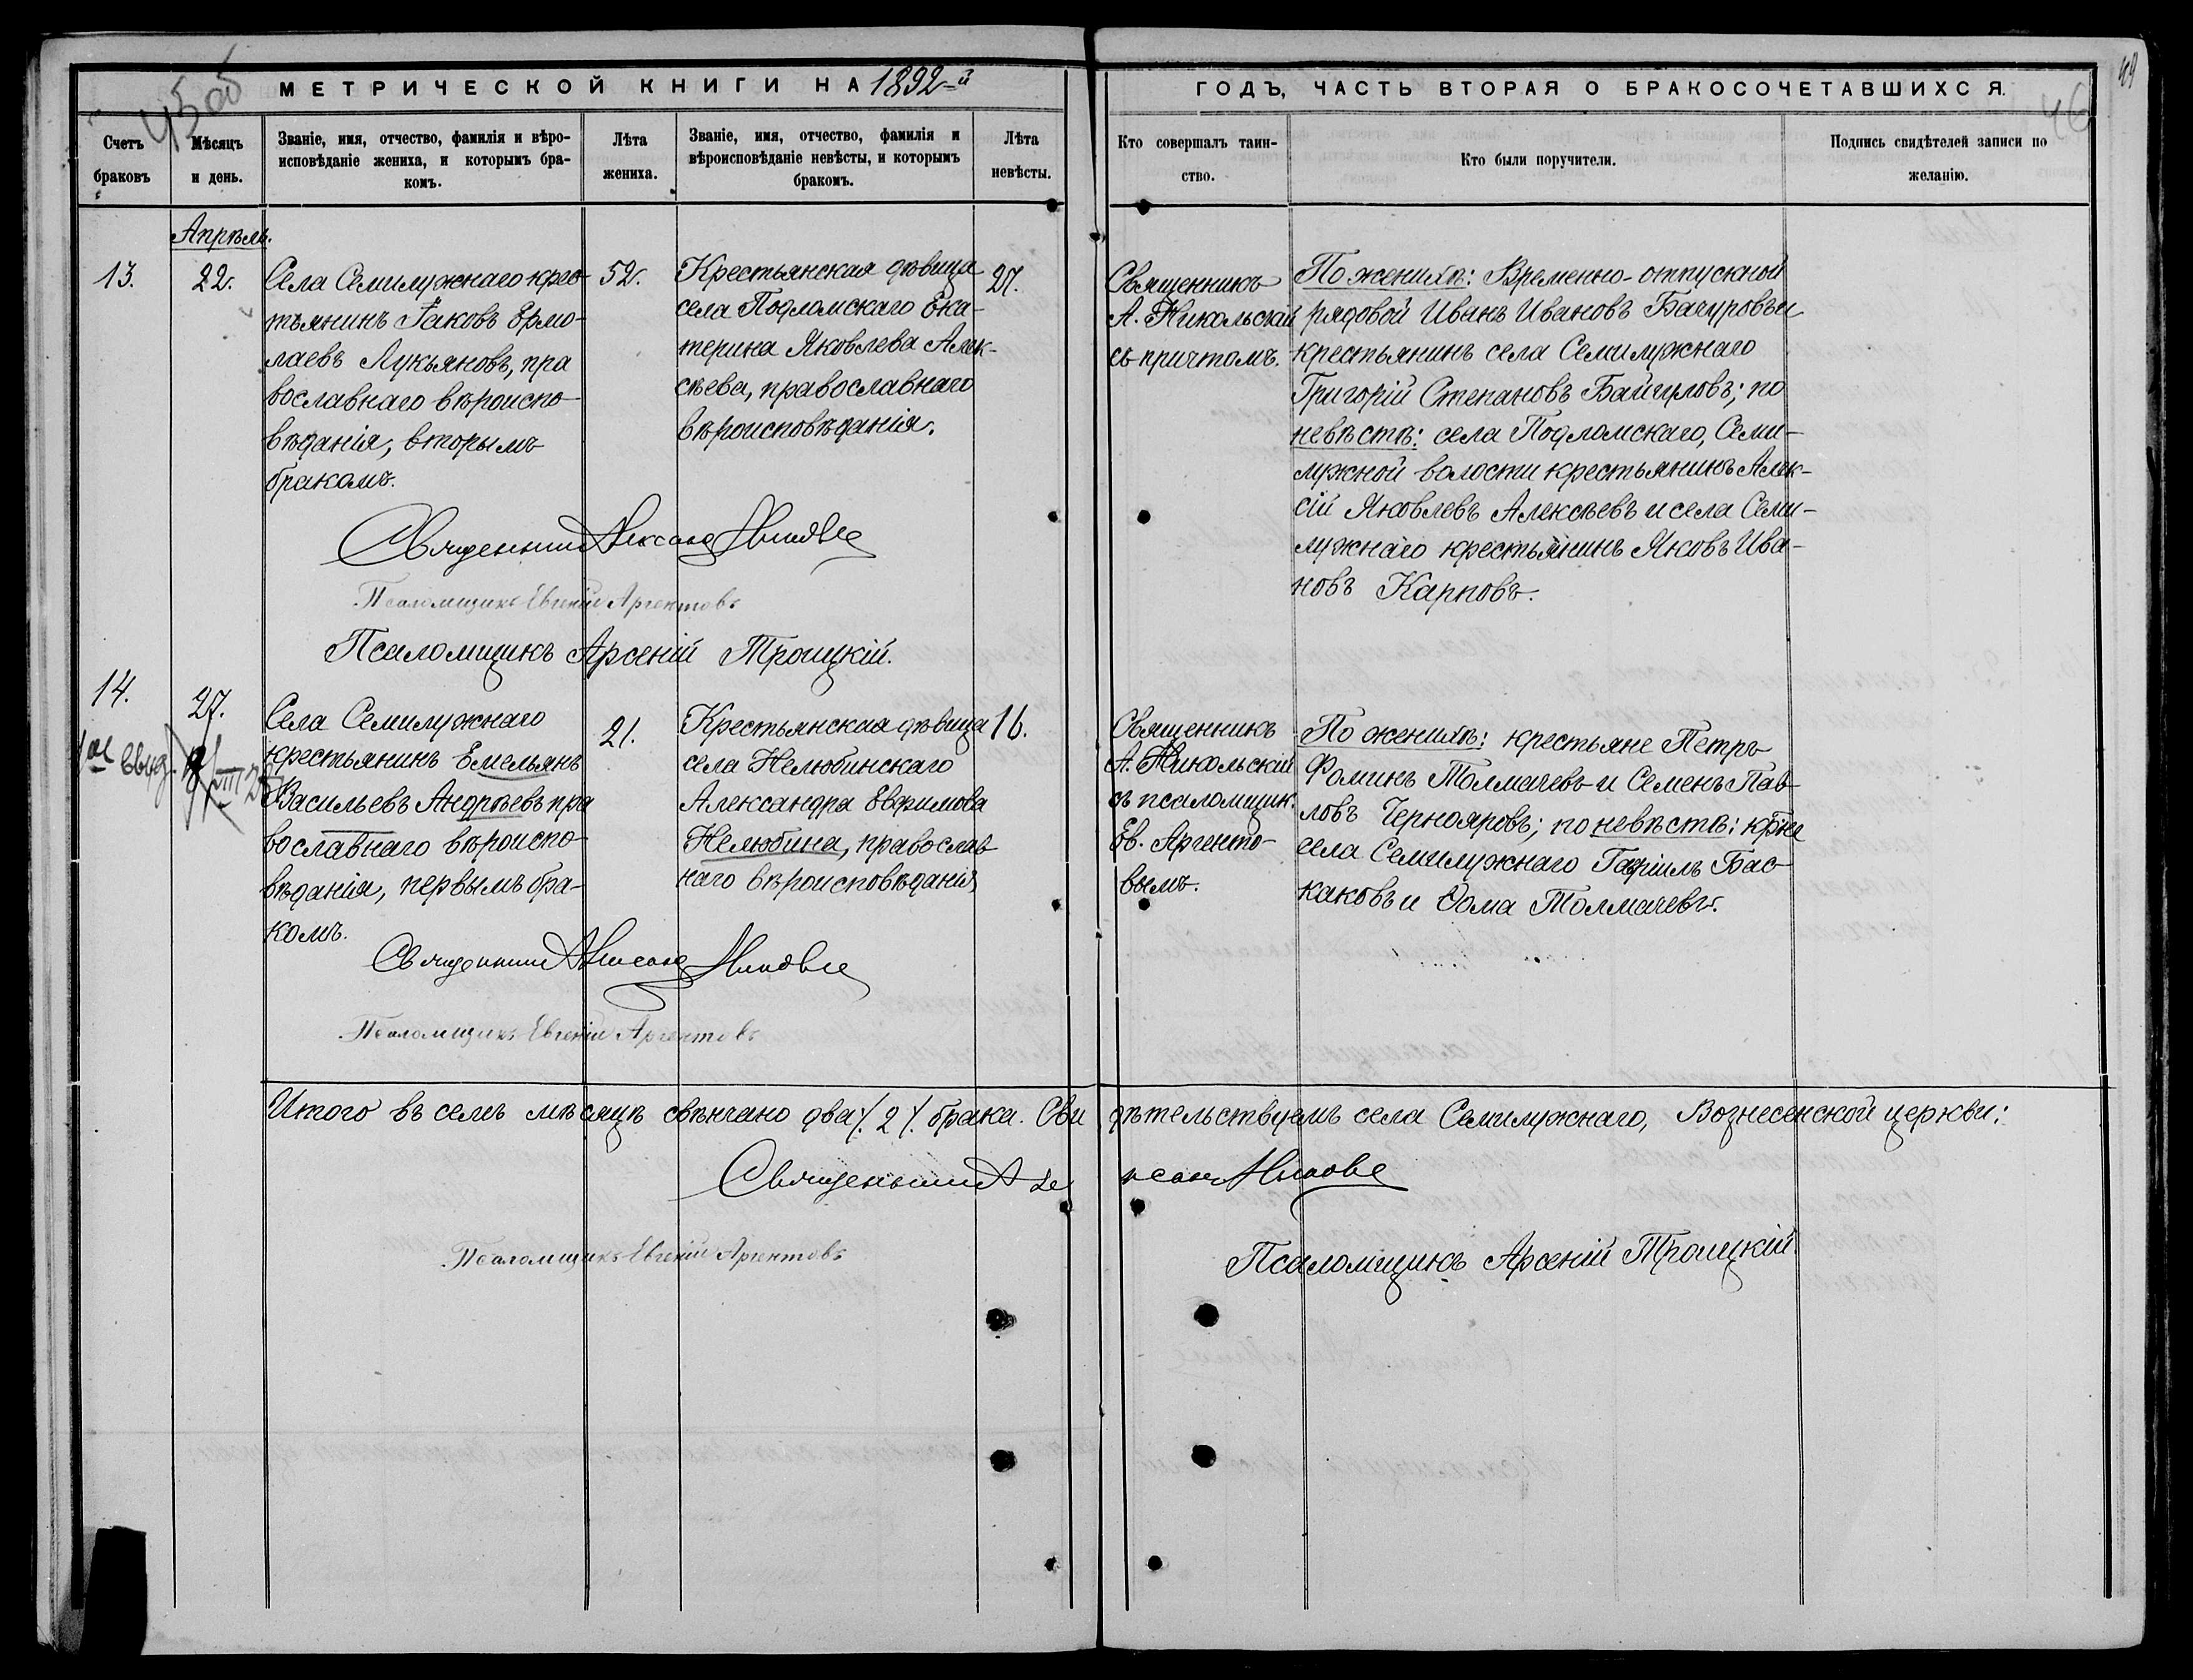 МЕТРИЧЕСКОЙ КНИГИ НА 1892-й
ГОДЪ, ЧАСТЬ ВТОРАЯ О БРАКОСОЧЕТАВШИХСЯ.
46
49
Счетъ браковъ
Мѣсяцъ и день.
Званіе, имя, отчество, фамилія и вѣро-
исповѣданіе жениха, и которымъ бра-
комъ.
Лѣта жениха.
Званіе, имя, отчество, фамилія и
вѣроисповѣданіе невѣсты, и которымъ
бракомъ.
Лѣта невѣсты.
Кто совершалъ таин-
ство.
Кто были поручители.
Подпись свидѣтелей записи по
желанію.
Апрѣль.
13.
22.
Села Семилужнаго крес-
тьянинъ Іаковъ Ермо-
лаевъ Лукьяновъ, пра
вославнаго вѣроиспо-
вѣданія, вторымъ
бракомъ.
52.
Крестьянская дѣвица
села Подломскаго Ека-
терина Яковлева Алек-
сѣева, православнаго
вѣроисповѣданія.
27.
Священникъ
А. Никольскій
съ причтомъ.
По женихѣ: Временно-отпускной
рядовой Иванъ Ивановъ Бачуровъ и
крестьянинъ села Семилужнаго
Григорій Степановъ Байгуловъ; по
невѣстѣ: села Подломскаго, Семи-
лужной волости крестьянинъ Алек-
сій Яковлевъ Алексѣевъ и села Семи-
лужнаго крестьянинъ Яковъ Ива-
новъ Карповъ.
Священник
Псаломщикъ Евгеній Аргентовъ
Псаломщикъ Арсеній Троицкій.
14.
27.
Села Семилужнаго
крестьянинъ Емельянъ
Васильевъ Андреевъ пра
вославнаго вѣроиспо-
вѣданія, первымъ бра-
комъ.
21.
Крестьянская дѣвица
села Нелюбинскаго
Александра Евфимова
Нелюбина, православ
наго вѣроисповѣданія
16.
Священникъ
А. Никольскій
съ псаломщик.
Ев. Аргенто-
вымъ.
По женихѣ: крестьяне Петръ
Фоминъ Толмачевъ и Семенъ Пав-
ловъ Чернояровъ; по невѣстѣ: кр-не
села Семилужнаго Гавріилъ Бас-
каковъ и Ѳома Толмачевъ.
Священник
Псаломщикъ Евгеній Аргентовъ
Итого въ семъ мѣсяцѣ свѣнчано два ./. 2 ./. брака. Сви дѣтельствуемъ села Семилужнаго, Вознесенской церкви:
Священник
Псаломщикъ Евгеній Аргентовъ
Псаломщикъ Арсеній Троицкій